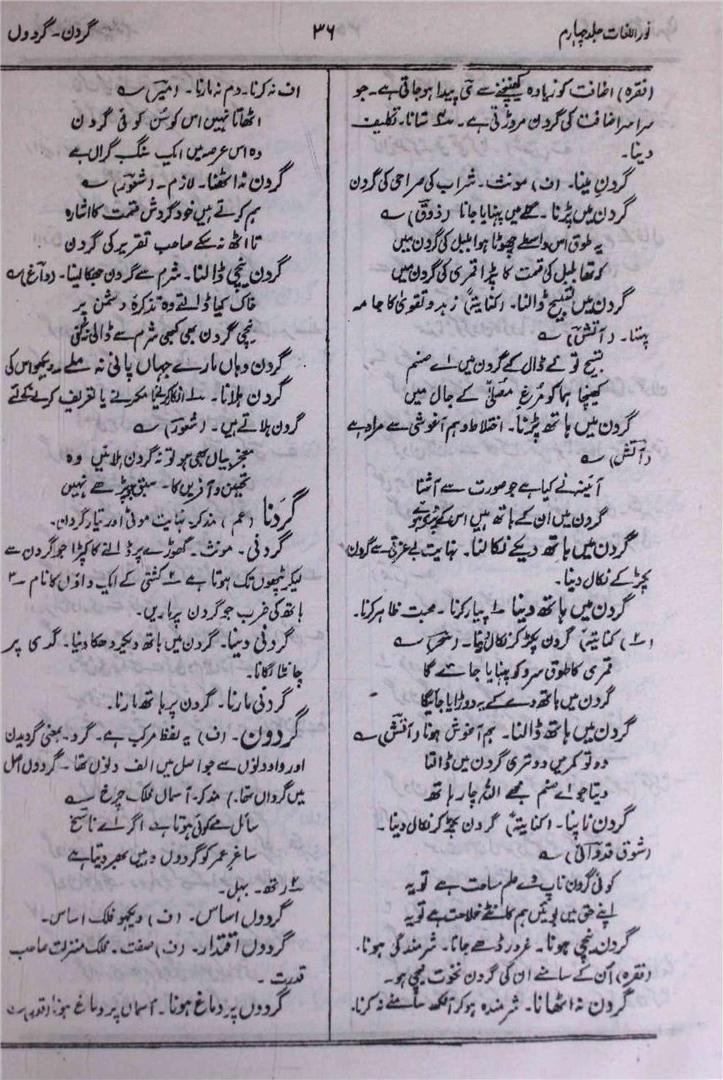 نور اللغات جلد چہارم
۳۶
گردن - گردوں
(فقرہ) اضافت کو زیادہ کھینچنے سے ئی پیدا ہو جاتی ہے۔ جو
سراسر اضافت کی گردن مروڑتی ہے۔ ستانا۔ تکلیف
دینا۔
گردن مینا۔ (ف) مونث۔ شراب کی صراحی کی گردن
گردن میں پڑنا۔ گلے میں پہنایا جانا (ذوق) ؎
یہ طوق اس واسطے چھوٹا ہوا بلبل کی گردن میں
کہ تھا بلبل کی قسمت کا پڑا قمری کی گردن میں
گردن میں تسبیح ڈالنا۔ (کنایتہً) زہد و تقویٰ کا جامہ
پہننا۔ (آتش) ؎
تسبیح تو نے ڈال کے گردن میں اے صنم
کھینچا ہما کو مرغ مصلی کے جال میں
گردن میں ہاتھ پڑنا۔ اختلاط وہم آغوشی سے مراد ہے
(آتش) ؎
آئینہ نے کیا ہے جو صورت سے آشنا
گردن میں ان کے ہاتھ ہیں اس کے پڑے ہوئے
گردن میں ہاتھ دیکے نکالنا۔ نہایت بے عزتی سے گردن
پکڑ کے نکال دینا۔
گردن میں ہاتھ دینا ۱۔ پیار کرنا۔ محبت ظاہر کرنا۔
(۲) کنایتہً گردن پکڑ کر نکال دینا۔ (سحر) ؎
قمری کا طوق سرو کو پہنایا جائے گا
گردن میں ہاتھ دے کے یہ دوڑایا جائیگا
گردن میں ہاتھ ڈالنا۔ ہم آغوش ہونا (آتش) ؎
وہ تو کمر میں دوسری گردن میں ڈالتا
دیتا جو اے صنم مجھے اللہ چار ہاتھ
گردن ناپنا۔ (کنایتہً) گردن پکڑ کر نکال دینا۔
(شوق قدوائی) ؎
کوئی گردن ناپ دے علم مساحت ہے تو یہ
اپنے حق میں بوئیں ہم کانٹے فلاحت ہے تو یہ
گردن نیچی ہونا۔ غرور ڈھے جانا۔ شرمندگی ہونا۔
(فقرہ) ان کے سامنے ان کی گردن نخوت نیچی ہو۔
گردن نہ اٹھانا۔ شرمندہ ہو کر آنکھ سامنے نہ کرنا۔
اف نہ کرنا۔ دم نہ مارنا۔ (میر) ؎
اٹھاتا نہیں اس کو سن کوئی گردن
وہ اس عرصہ میں ایک سنگ گراں ہے
گردن نہ اٹھنا۔ لازم۔ (شعور) ؎
ہم کرتے ہیں خود گردش قسمت کا اشارہ
تا اٹھ نہ سکے صاحب تقریر کی گردن
گردن نیچی ڈالنا۔ شرم سے گردن جھکا لینا۔ (داغ) ؎
خاک کیا ڈالتے وہ تذکرۂ دشمن پر
نیچی گردن بھی کبھی شرم سے ڈالی نہ گئی
گردن وہاں مارے جہاں پانی نہ ملے۔ دیکھو اس کی
گردن ہلانا۔ ۱۔ انکار کرنا یا تعریف کرنے کیلئے
گردن ہلاتے ہیں۔ (شعور) ؎
معجز بیاں بھی ہو تو نہ گردن ہلائیں وہ
تحسین و آفریں کا۔ سبق پڑھے نہیں
گردنا (عم) مذکر۔ نہایت موٹی اور تیار گردن۔
گردنی۔ مونث۔ گھوڑے پر ڈالنے کا کپڑا جو گردن سے
لیکر پٹھوں تک ہوتا ہے ۲۔ کشتی کے ایک داؤں کا نام ۳۔
ہاتھ کی ضرب جو گردن پر ماریں۔
گردنی دینا۔ گردن میں ہاتھ دیکر دھکا دینا۔ گدی پر
چانٹا لگانا۔
گردنی مارنا۔ گردن پر ہاتھ مارنا۔
گردون۔ (ف) یہ لفظ مرکب ہے۔ گرد۔ بمعنی گردیدن
اور واؤ و نون سے جو اصل میں الف و نون تھا۔ گردوں اصل
میں گرداں تھا۔) مذکر۔ آسماں فلک چرخ ؎
سائل سے کوئی ہوتا ہے اگر اے ناسخ
ساغر عمر کو گردوں وہیں بھر دیتا ہے
۲۔ رتھ۔ بہل۔
گردوں اساس۔ (ف) دیکھو فلک اساس۔
گردوں اقتدار۔ (ف) صفت۔ فلک منزلت صاحب
قدرت۔
گردوں پر دماغ ہونا۔ آسماں پر دماغ ہونا